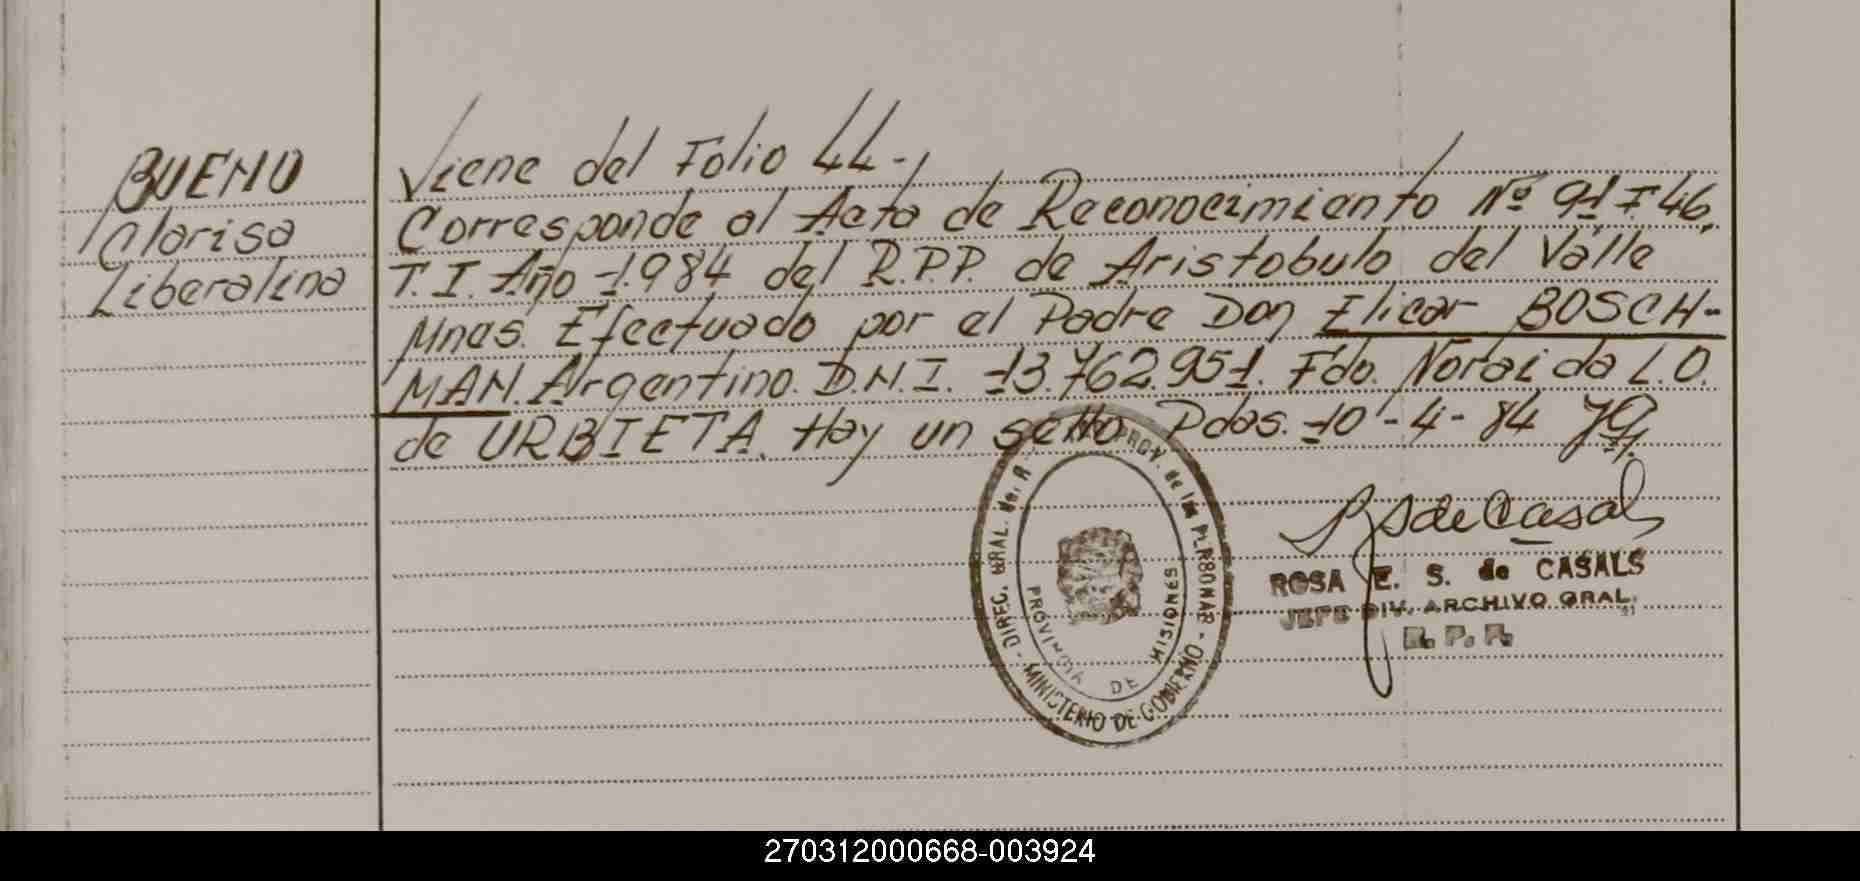 BUENO
Clarisa
Liberalina
Viene del Folio 44.-
Corresponde al Acta de Reconocimiento Nº 91 F. 46,
T. I. Año 1.984 del R.P.P. de Aristobulo del Valle
Mnes. Efectuado por el Padre Don Elicar BOSCH-
MAN. Argentino. D.N.I. 13.762.951. Fdo. Noraida L.O.
de URBIETA. Hay un sello Pdas. 10-4-84
DIREC. GRAL. del R. PROV. de las PERSONAS - MINISTERIO DE GOBIERNO -
PROVINCIA DE MISIONES
de Casals
ROSA E. S. de CASALS
JEFE DIV. ARCHIVO GRAL.
R. P. P.
270312000668-003924